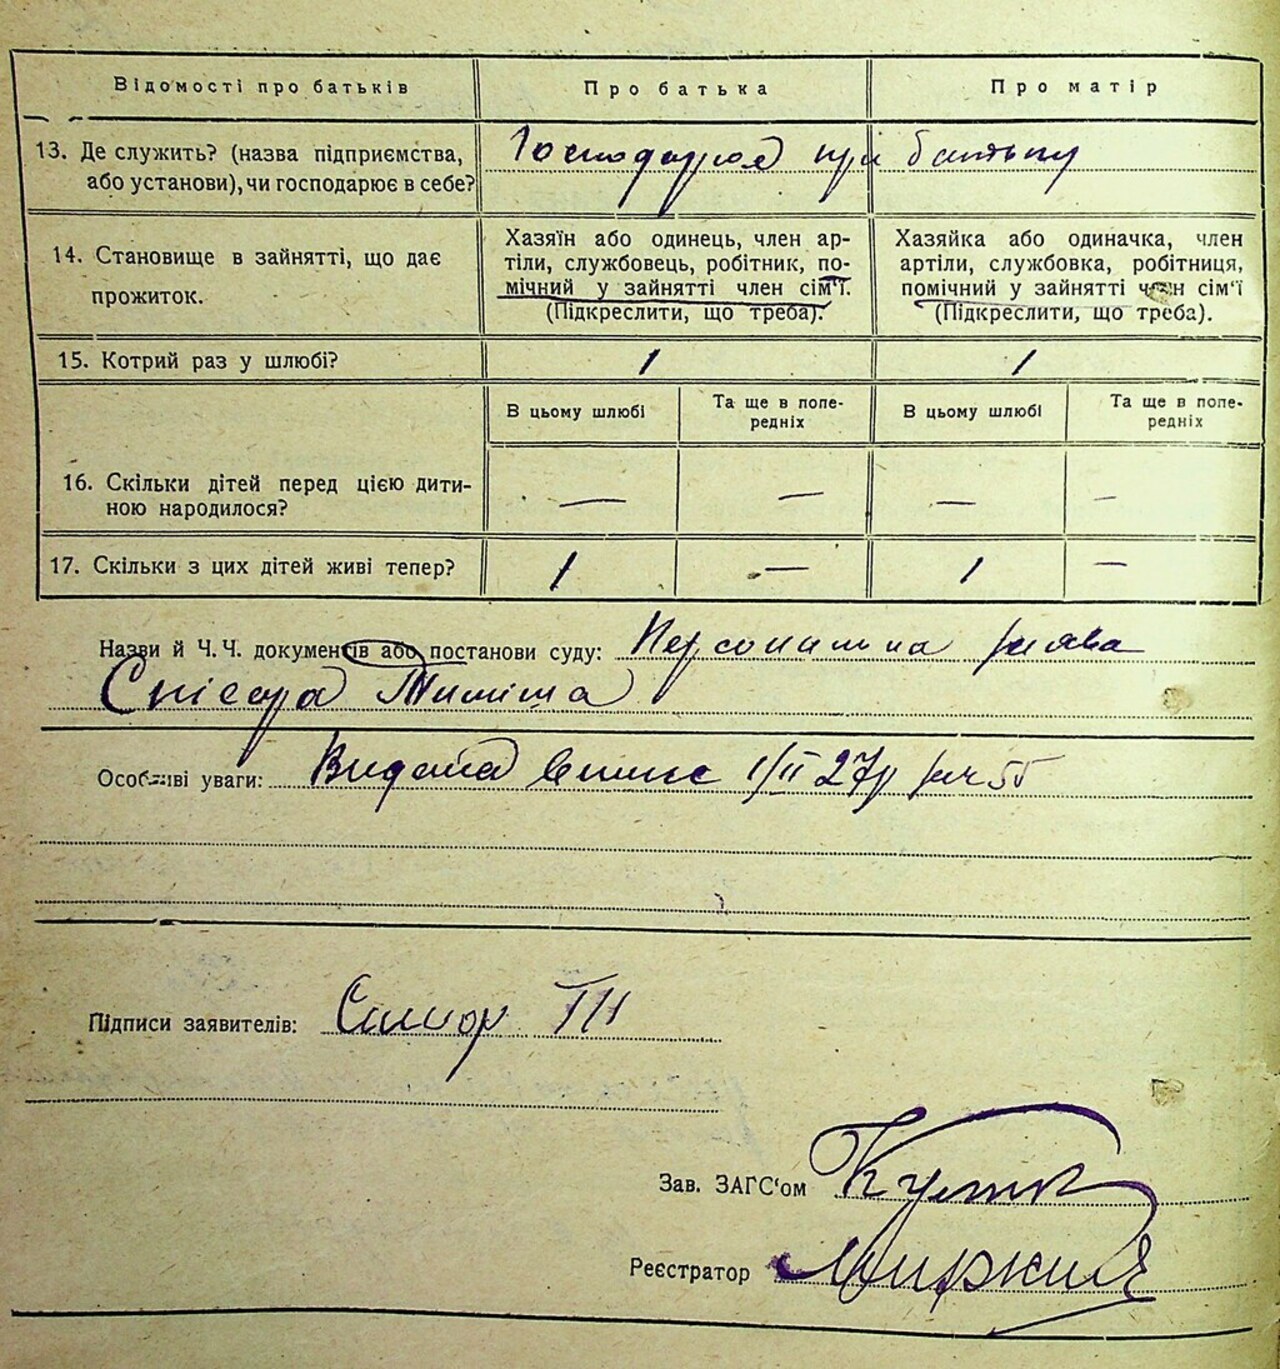 Відомості про батьків
Про батька
Про матір
13. Де служить? (назва підприємства,
або установи), чи господарює в себе?
Господарює при батьку
14. Становище в зайнятті, що дає
прожиток.
Хазяїн або одинець, член ар-
тілі, службовець, робітник, по-
мічний у зайнятті член сім'ї.
(Підкреслити, що треба).
Хазяйка або одиначка, член
артілі, службовка, робітниця,
помічний у зайнятті член сім'ї
(Підкреслити, що треба).
15. Котрий раз у шлюбі?
1
1
В цьому шлюбі
Та ще в попе-
редніх
В цьому шлюбі
Та ще в попе-
редніх
16. Скільки дітей перед цією дити-
ною народилося?
—
—
—
—
17. Скільки з цих дітей живі тепер?
1
—
1
—
Назви й Ч.Ч. документів або постанови суду: Персональна заява
Особливі уваги: 1/II 27р 55
Підписи заявителів:
Зав. ЗАГС'ом
Реєстратор